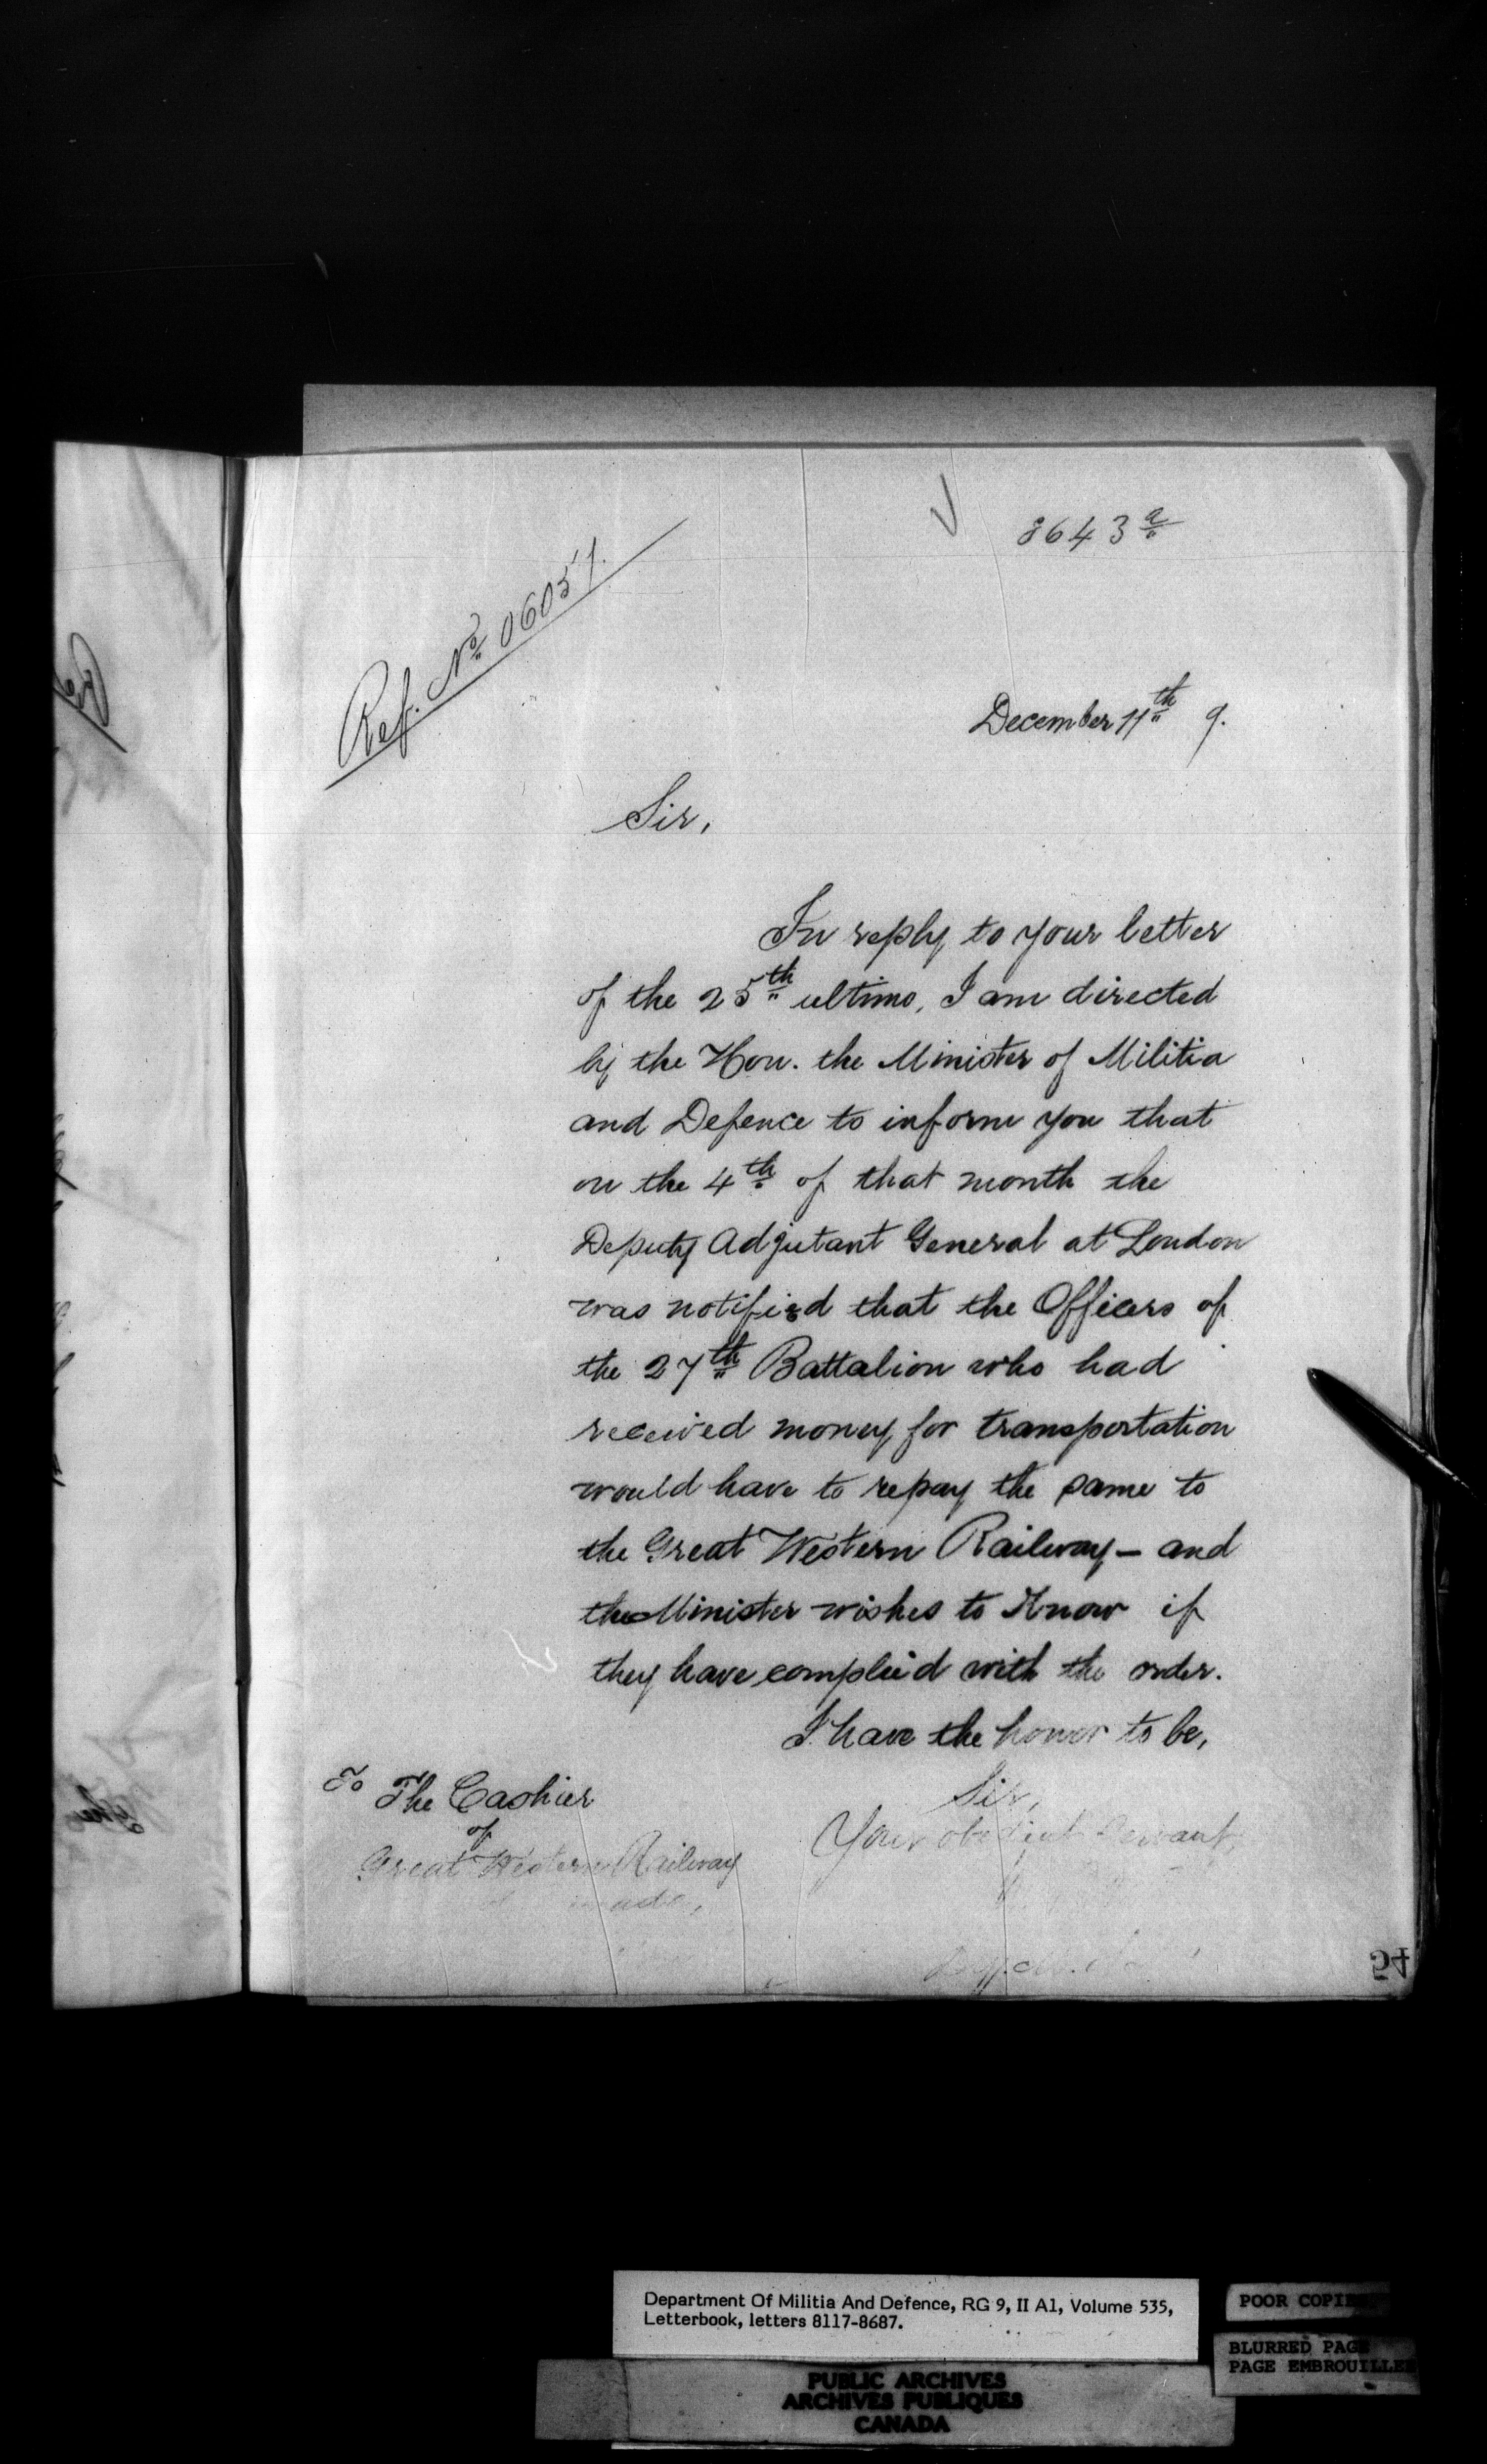 8643 a
Ref. No. 06057.
December 11th 9.
Sir,
In reply to your letter
of the 25th ultimo, I am directed
by the Hon. the Minister of Militia
and Defence to inform you that
on the 4th of that month the
Deputy Adjutant General at London
was notified that the Officers of
the 27th Battalion who had
received money for transportation
would have to repay the same to
the Great Western Railway — and
the Minister wishes to Know if
they have complied with the order.
I have the honor to be,
Sir,
Your obedient Servant,
To The Cashier
of
Great Western Railway
54
Department Of Militia And Defence, RG 9, II A1, Volume 535,
Letterbook, letters 8117-8687.
POOR COPIE
BLURRED PAGE
PAGE EMBROUILLE
PUBLIC ARCHIVES
ARCHIVES PUBLIQUES
CANADA